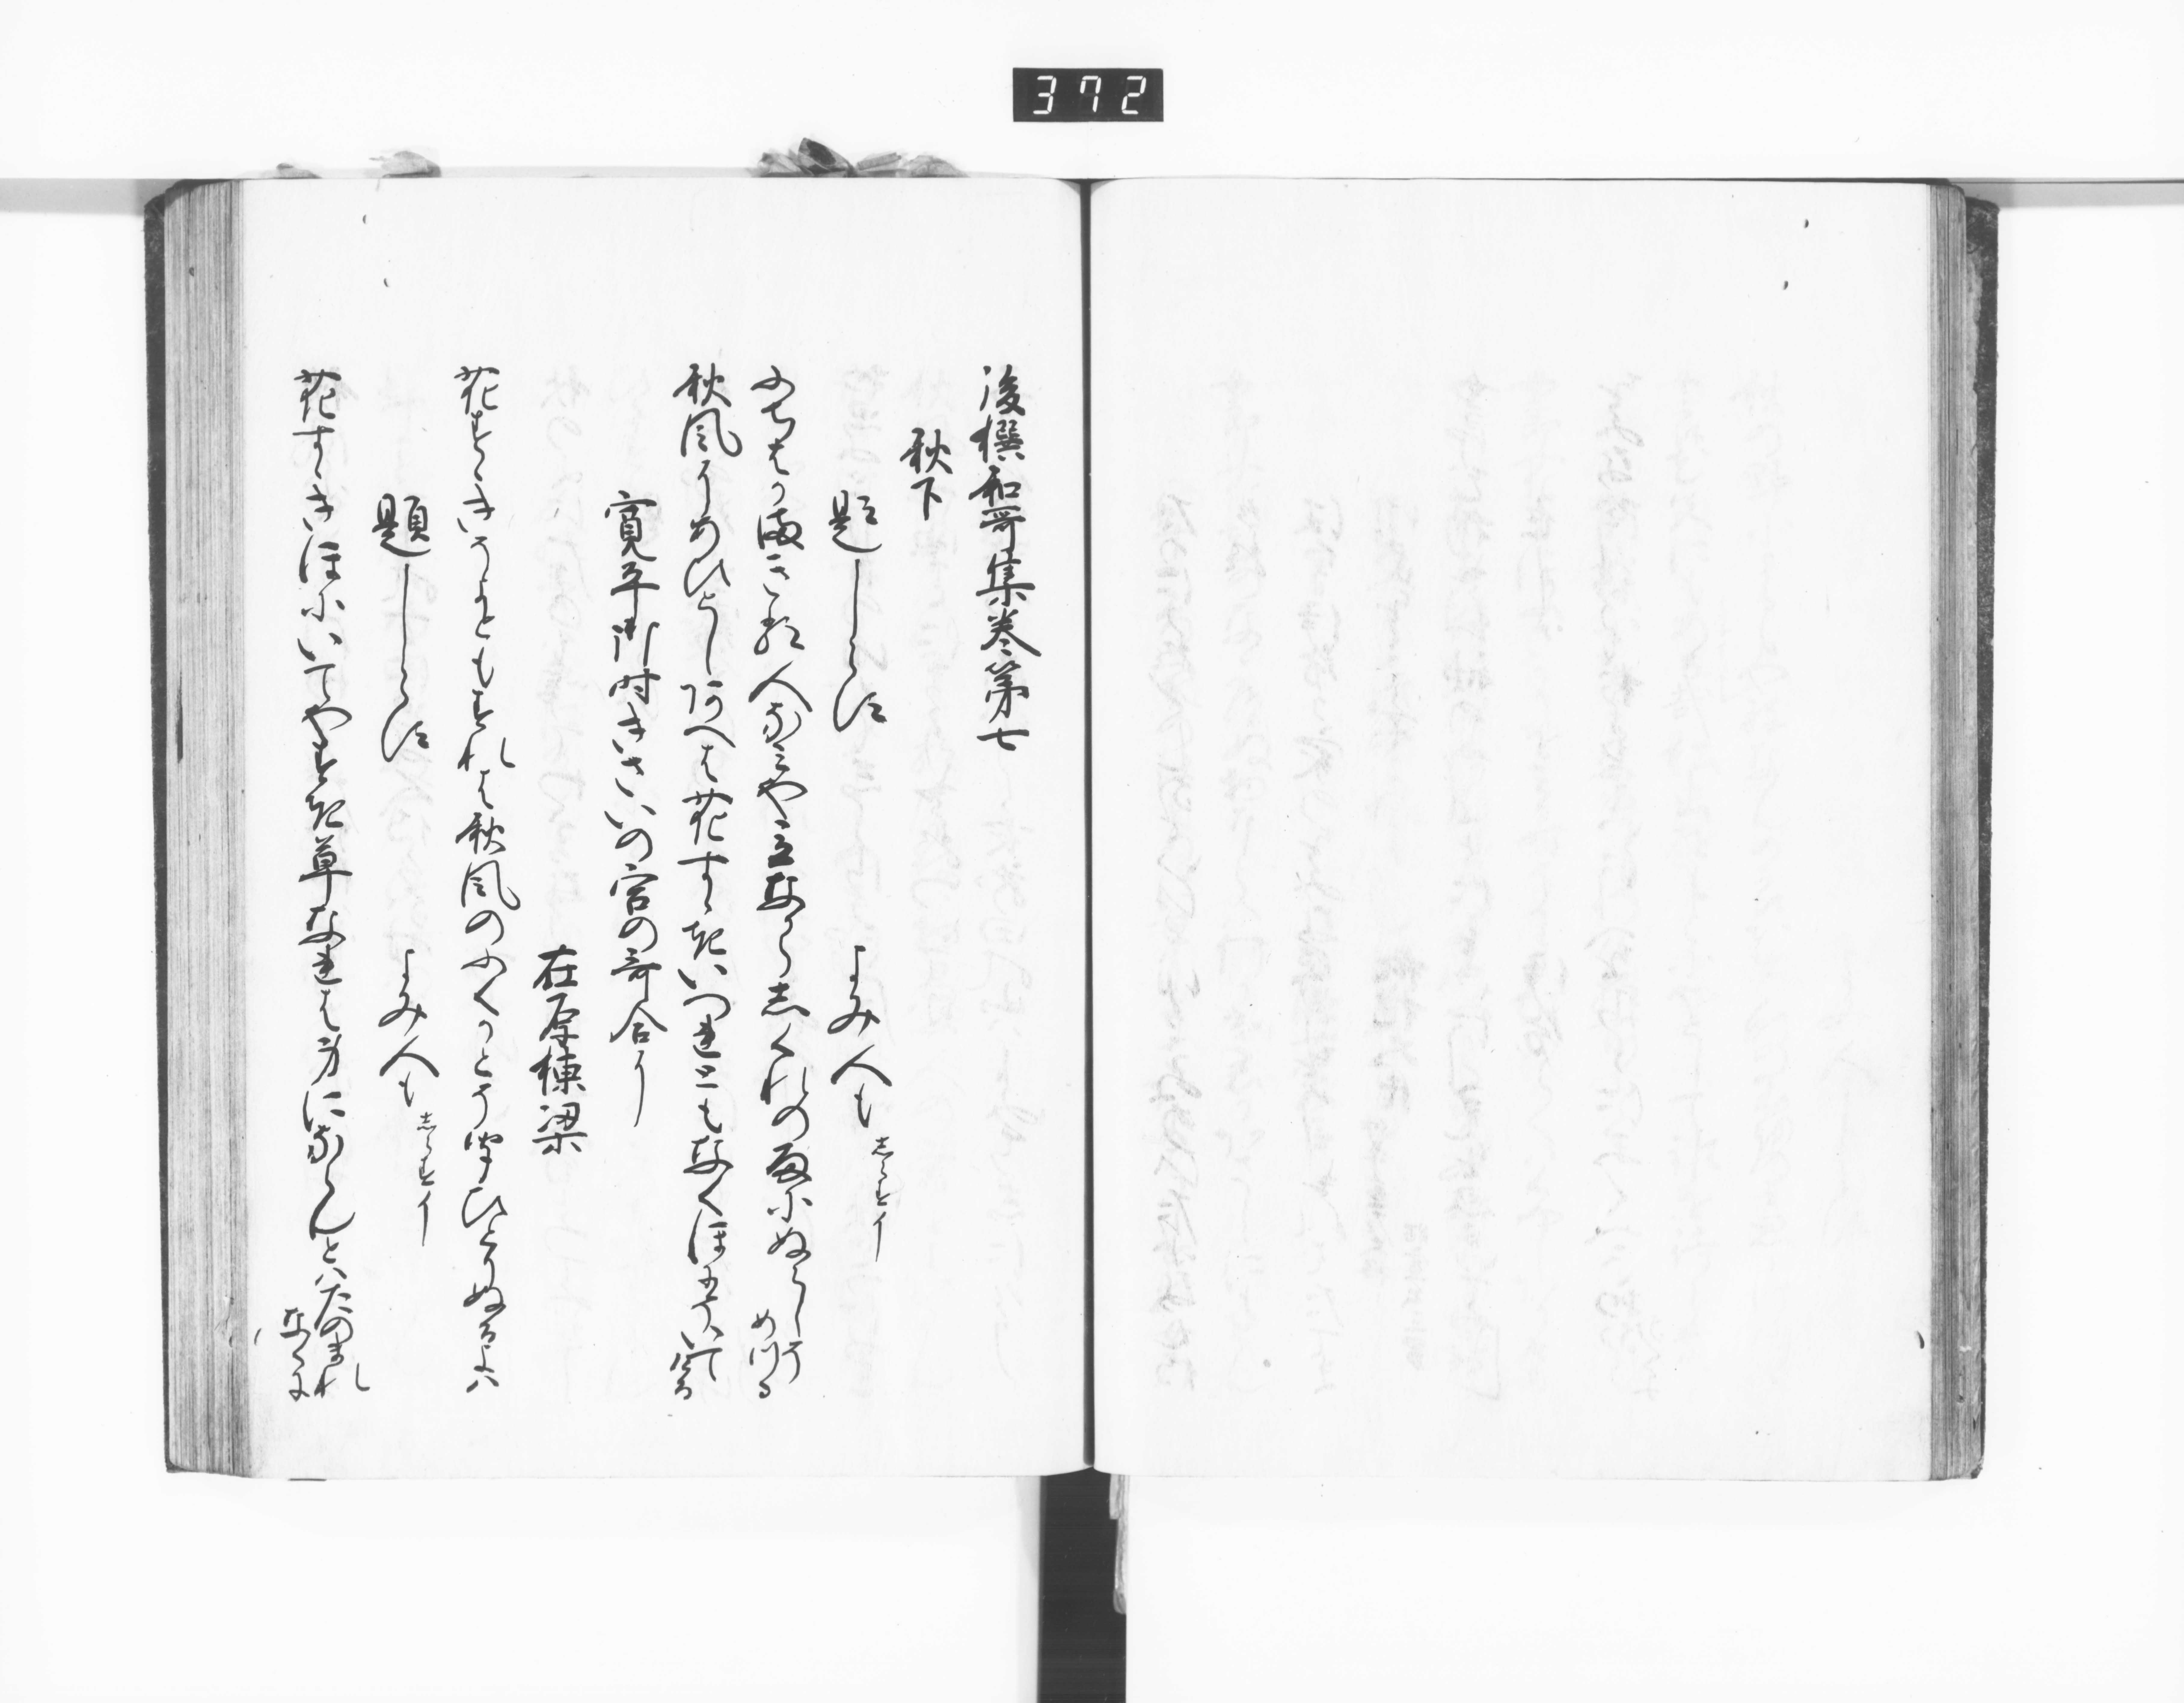 372
後撰和哥集巻第七
秋下
題しらす よみ人も しらすイ
ふちはかまきる人なみや立なからしくれの雨にぬらしそめつる
秋風にあひとしあへは花すゝきいつれともなくほにそいてける
寛平御時きさいの宮の哥合に
在原棟梁
花すゝきそよともすれは秋風のふくかとそ聞ひとりぬるよは
題しらす よみ人も しらすイ
花すゝきほにいてやすき草なれは身にならんとはたのまれなくに